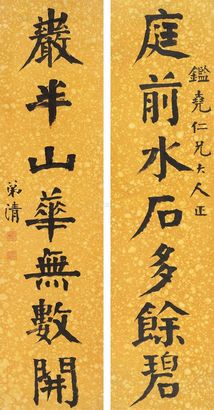 鑑堯仁兄大人正
庭前水石多餘碧
巖半山華無數開
弟清